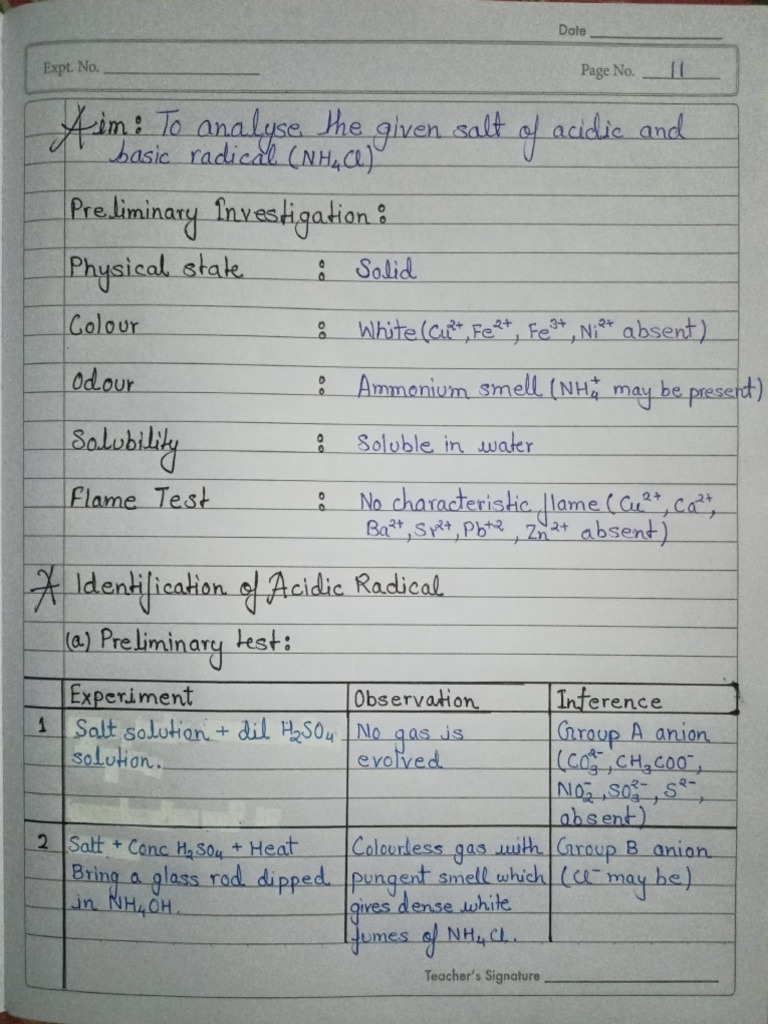 Date
Expt. No.
Page No. 11
Aim: To analyse the given salt of acidic and
basic radical (NH₄Cl)
Preliminary Investigation:
Physical state : Solid
Colour : White (Cu²⁺, Fe²⁺, Fe³⁺, Ni²⁺ absent)
Odour : Ammonium smell (NH₄⁺ may be present)
Solubility : Soluble in water
Flame Test : No characteristic flame (Cu²⁺, Ca²⁺,
Ba²⁺, Sr²⁺, Pb⁺², Zn²⁺ absent)
Identification of Acidic Radical
(a) Preliminary test:
Experiment Observation Inference
1 Salt solution + dil H₂SO₄ No gas is Group A anion
solution. evolved (CO₃²⁻, CH₃COO⁻,
NO₂⁻, SO₃²⁻, S²⁻,
absent)
2 Salt + Conc H₂SO₄ + Heat Colourless gas with Group B anion
Bring a glass rod dipped pungent smell which (Cl⁻ may be)
in NH₄OH. gives dense white
fumes of NH₄Cl.
Teacher's Signature